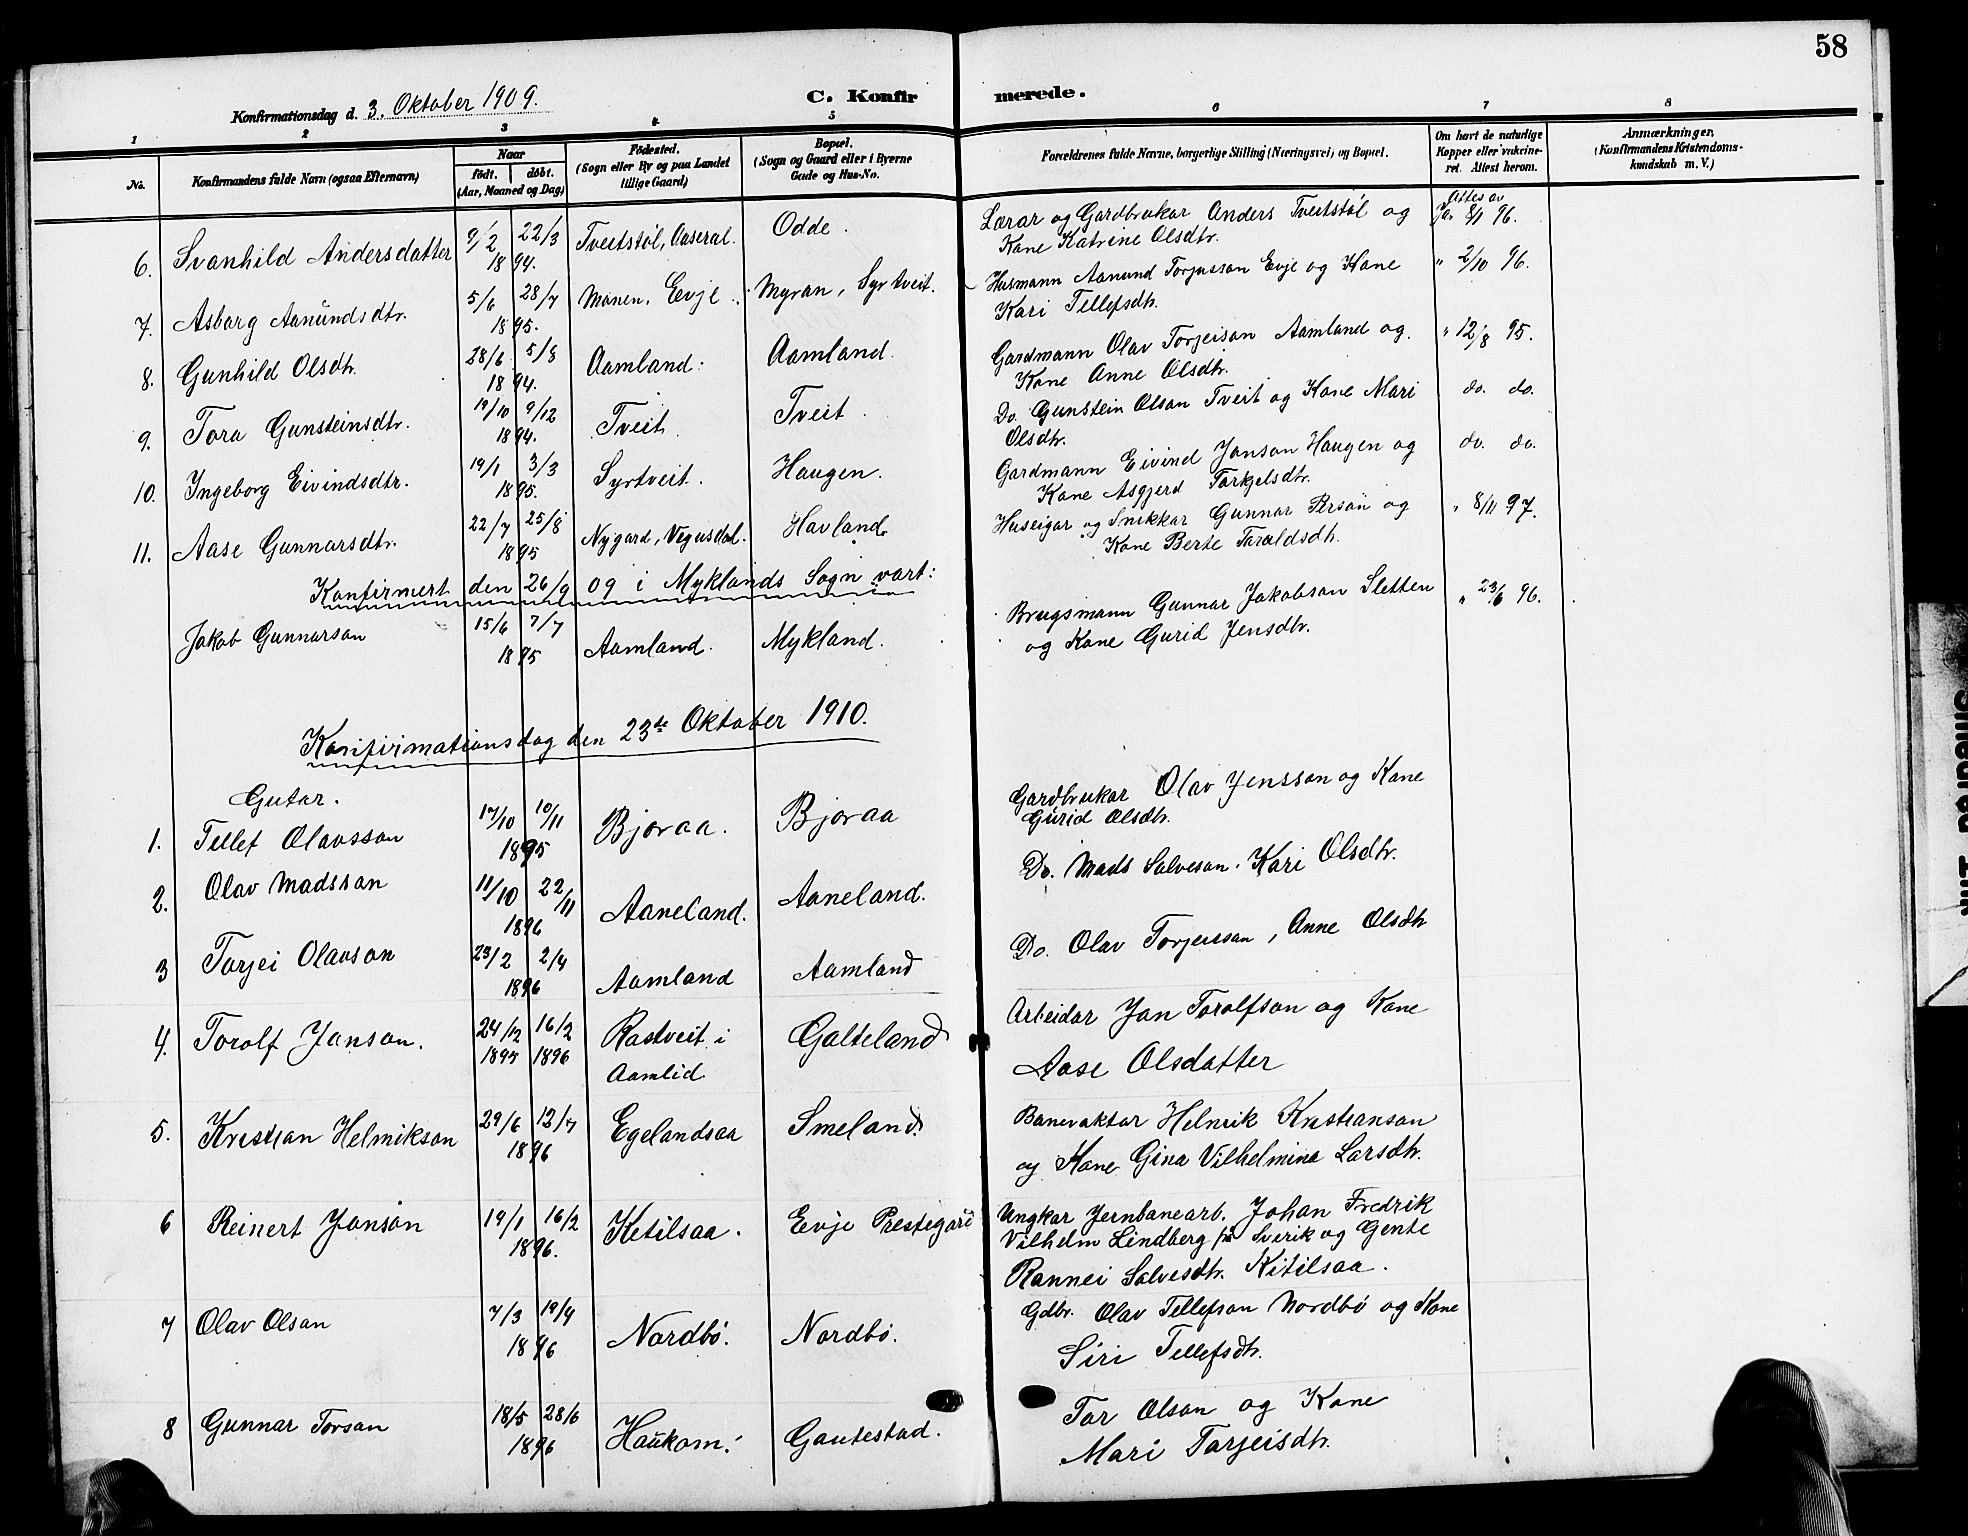 58
Konfirmationsdag d. 3. Oktober 1909.
C. Konfirmerede.
1 2 3 4 5 6 7 8
No. Konfirmandens fulde Navn (ogsaa Efternavn) Naar født. døbt. (Aar, Maaned og Dag) Fødested. (Sogn eller By og paa Landet tillige Gaard) Bopæl. (Sogn og Gaard eller i Byerne Gade og Hus-No. Forældrenes fulde Navne, borgerlige Stilling (Næringsvei) og Bopæl. Om havt de naturlige Kopper eller vakcineret. Attest herom. Anmærkninger. (Konfirmandens Kristendomskundskab m. V.)
6. Svanhild Andersdatter 9/2 22/3 1894. Tveitstøl, Aaseral. Odde. Lærar og Gardbrukar Anders Tveitstøl og Kone Katrine Olsdtr. Attes av 8/1 96.
7. Asborg Aanundsdtr. 5/6 28/7 1895. Monen, Evje. Myran, Syrtveit. Husmann Aanund Torjusson Evje og Kone Kari Tellefsdtr. " 2/10 96.
8. Gunhild Olsdtr. 28/6 5/8 1894. Aamland. Aamland. Gardmann Olav Torjeison Aamland og Kone Anne Olsdtr. " 12/8 95.
9. Tora Gunsteinsdtr. 19/10 9/12 1894. Tveit. Tveit. Do. Gunstein Olson Tveit og Kone Mari Olsdtr. do. do.
10. Ingeborg Eivindsdtr. 19/1 3/3 1895. Syrtveit. Haugen. Gardmann Eivind Jonson Haugen og Kone Asgjerd Torkjelsdtr. do. do.
11. Aase Gunnarsdtr. 22/7 25/8 1895 Nygard, Vegusdal. Havland Huseigar og Snikkar Gunnar Person og Kone Berte Taraldsdtr. " 8/11 97.
Konfirmert den 26/9 09 i Myklands Sogn vart:
Jakob Gunnarson 15/6 7/7 1895 Aamland. Mykland. Brugsmann Gunnar Jakobson Sletten og Kone Gurid Jensdtr. " 23/6 96.
Konfirmationsdag den 23de Oktober 1910.
Gutar.
1. Tellef Olavsson 17/10 10/11 1895 Bjoraa. Bjoraa Gardbrukar Olav Jensson og Kone Gurid Olsdtr.
2. Olav Madsson 11/10 22/11 1896 Aaneland. Aaneland. Do. Mads Salveson. Kari Olsdtr.
3 Torjei Olavson 23/2 2/4 1896 Aamland Aamland Do. Olav Torjeisson, Anne Olsdtr
4. Torolf Janson. 24/12 1895 16/2 1896 Rastveit i Aamlid Galteland Arbeidar Jan Torolfson og Kone Aase Olsdatter
5. Kristian Helmikson 29/6 12/7 1896 Egelandsaa Smeland. Banevaktar Helmik Kristianson og Kone Gina Vilhelmina Larsdtr.
6 Reinert Janson 19/1 16/2 1896. Ketilsaa. Evje Prestegard Ungkar Jernbanearb. Johan Fredrik Vilhelm Lindberg fra Sverik og Gente Rannei Salvesdtr. Kitilsaa.
7 Olav Olson 7/3 19/4 1896 Nordbö. Nordbö. Gdbr. Olav Tellefson Nordbö og Kone Siri Tellefsdtr.
8 Gunnar Torson 18/5 28/6 1896 Haukom. Gautestad. Tor Olson og Kone Mari Torjeisdtr.